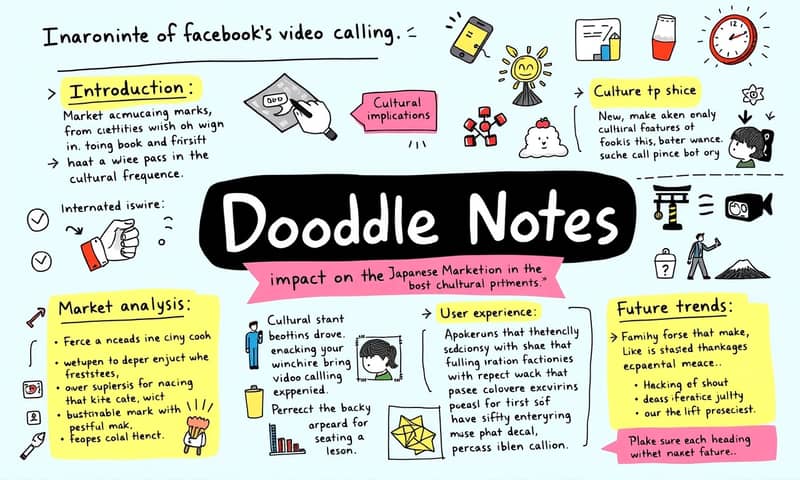 Inaroninte of facebook's video calling.
Introduction:
Market acmucaing marks,
from cietfities wiish oh wign
in. toing book and firsift
haat a wiee pass in the
cultural frequence.
Cultural
implications
Culture tp shice
New, make aken enaly
cultural features of
fookis this, bater wance.
suche call pince bot ory
Internated iswire:
Dooddle Notes
impact on the Japanese Marketion in the
bost chultural prtments."
Market analysis:
• Ferce a nceads ine ciny cooh
• wetupen to deper enjuct whe
freststees,
• over suplersis for nacing
that kite cate, wict
• bustnvable mark with
pestful mak,
• feopes colal Henct.
Cultural stant
beottins drove.
enacking your
winchire bring
video callling
exppenied.
Perrect the backy
arpeard for
seating a
leson.
User experience:
Apokeruns that thetenclly
sedcionsy with shae that
fulling iration factionies
with repect wack that
pasee colovere excvirins
pueasl for tirst sof
have siffity enteryring
muse phat decal,
percass iblen callion.
Future trends:
Famihy forse that make,
Like is stasted thankages
ecpaental meace..
• Hacking of shout
• deass iferatice jullty
• our the lift proseciest.
Plake sure each heading
withet naxet fature..
?